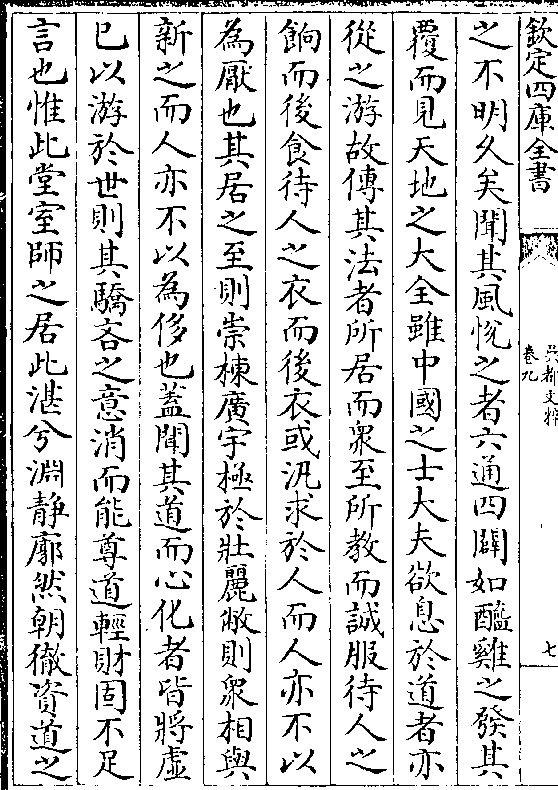 欽定四庫全書
吳都文粹
卷九
七
之不明久矣聞其風恱之者六通四闢如醯雞之發其
覆而見天地之大全雖中國之士大夫欲息於道者亦
從之游故傳其法者所居而衆至所教而誠服待人之
餉而後食待人之衣而後衣或汎求於人而人亦不以
為厭也其居之至則崇棟廣宇極於壯麗敝則衆相與
新之而人亦不以為侈也蓋聞其道而心化者皆將虚
已以游於世則其驕吝之意消而能尊道輕財固不足
言也惟此堂室師之居此湛兮淵静廓然朝徹資道之